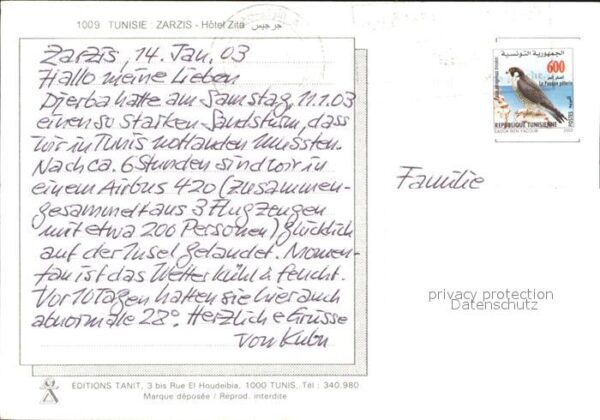 1009 TUNISIE : ZARZIS - Hôtel Zita جرجيس
Zarzis, 14. Jan. 03
Hallo meine Lieben
Djerba hatte am Samstag, 11.1.03
einen so starken Sandsturm, dass
wir in Tunis notlanden mussten.
Nach ca. 6 Stunden sind wir in
einem Airbus 420 (zusammen-
gesammelt aus 3 Flugzeugen
mit etwa 200 Personen) glücklich
auf der Insel gelandet. Momen-
tan ist das Wetter kühl & feucht.
Vor 10 Tagen hatten sie hier auch
abnormale 28°. Herzliche Grüsse
von
الجمهورية التونسية
600
Le Faucon pèlerin
REPUBLIQUE TUNISIENNE
POSTES البريد
2002
Familie
privacy protection
Datenschutz
EDITIONS TANIT, 3 bis Rue El Houdeibia, 1000 TUNIS, Tél : 340.980
Marque déposée / Reprod. interdite